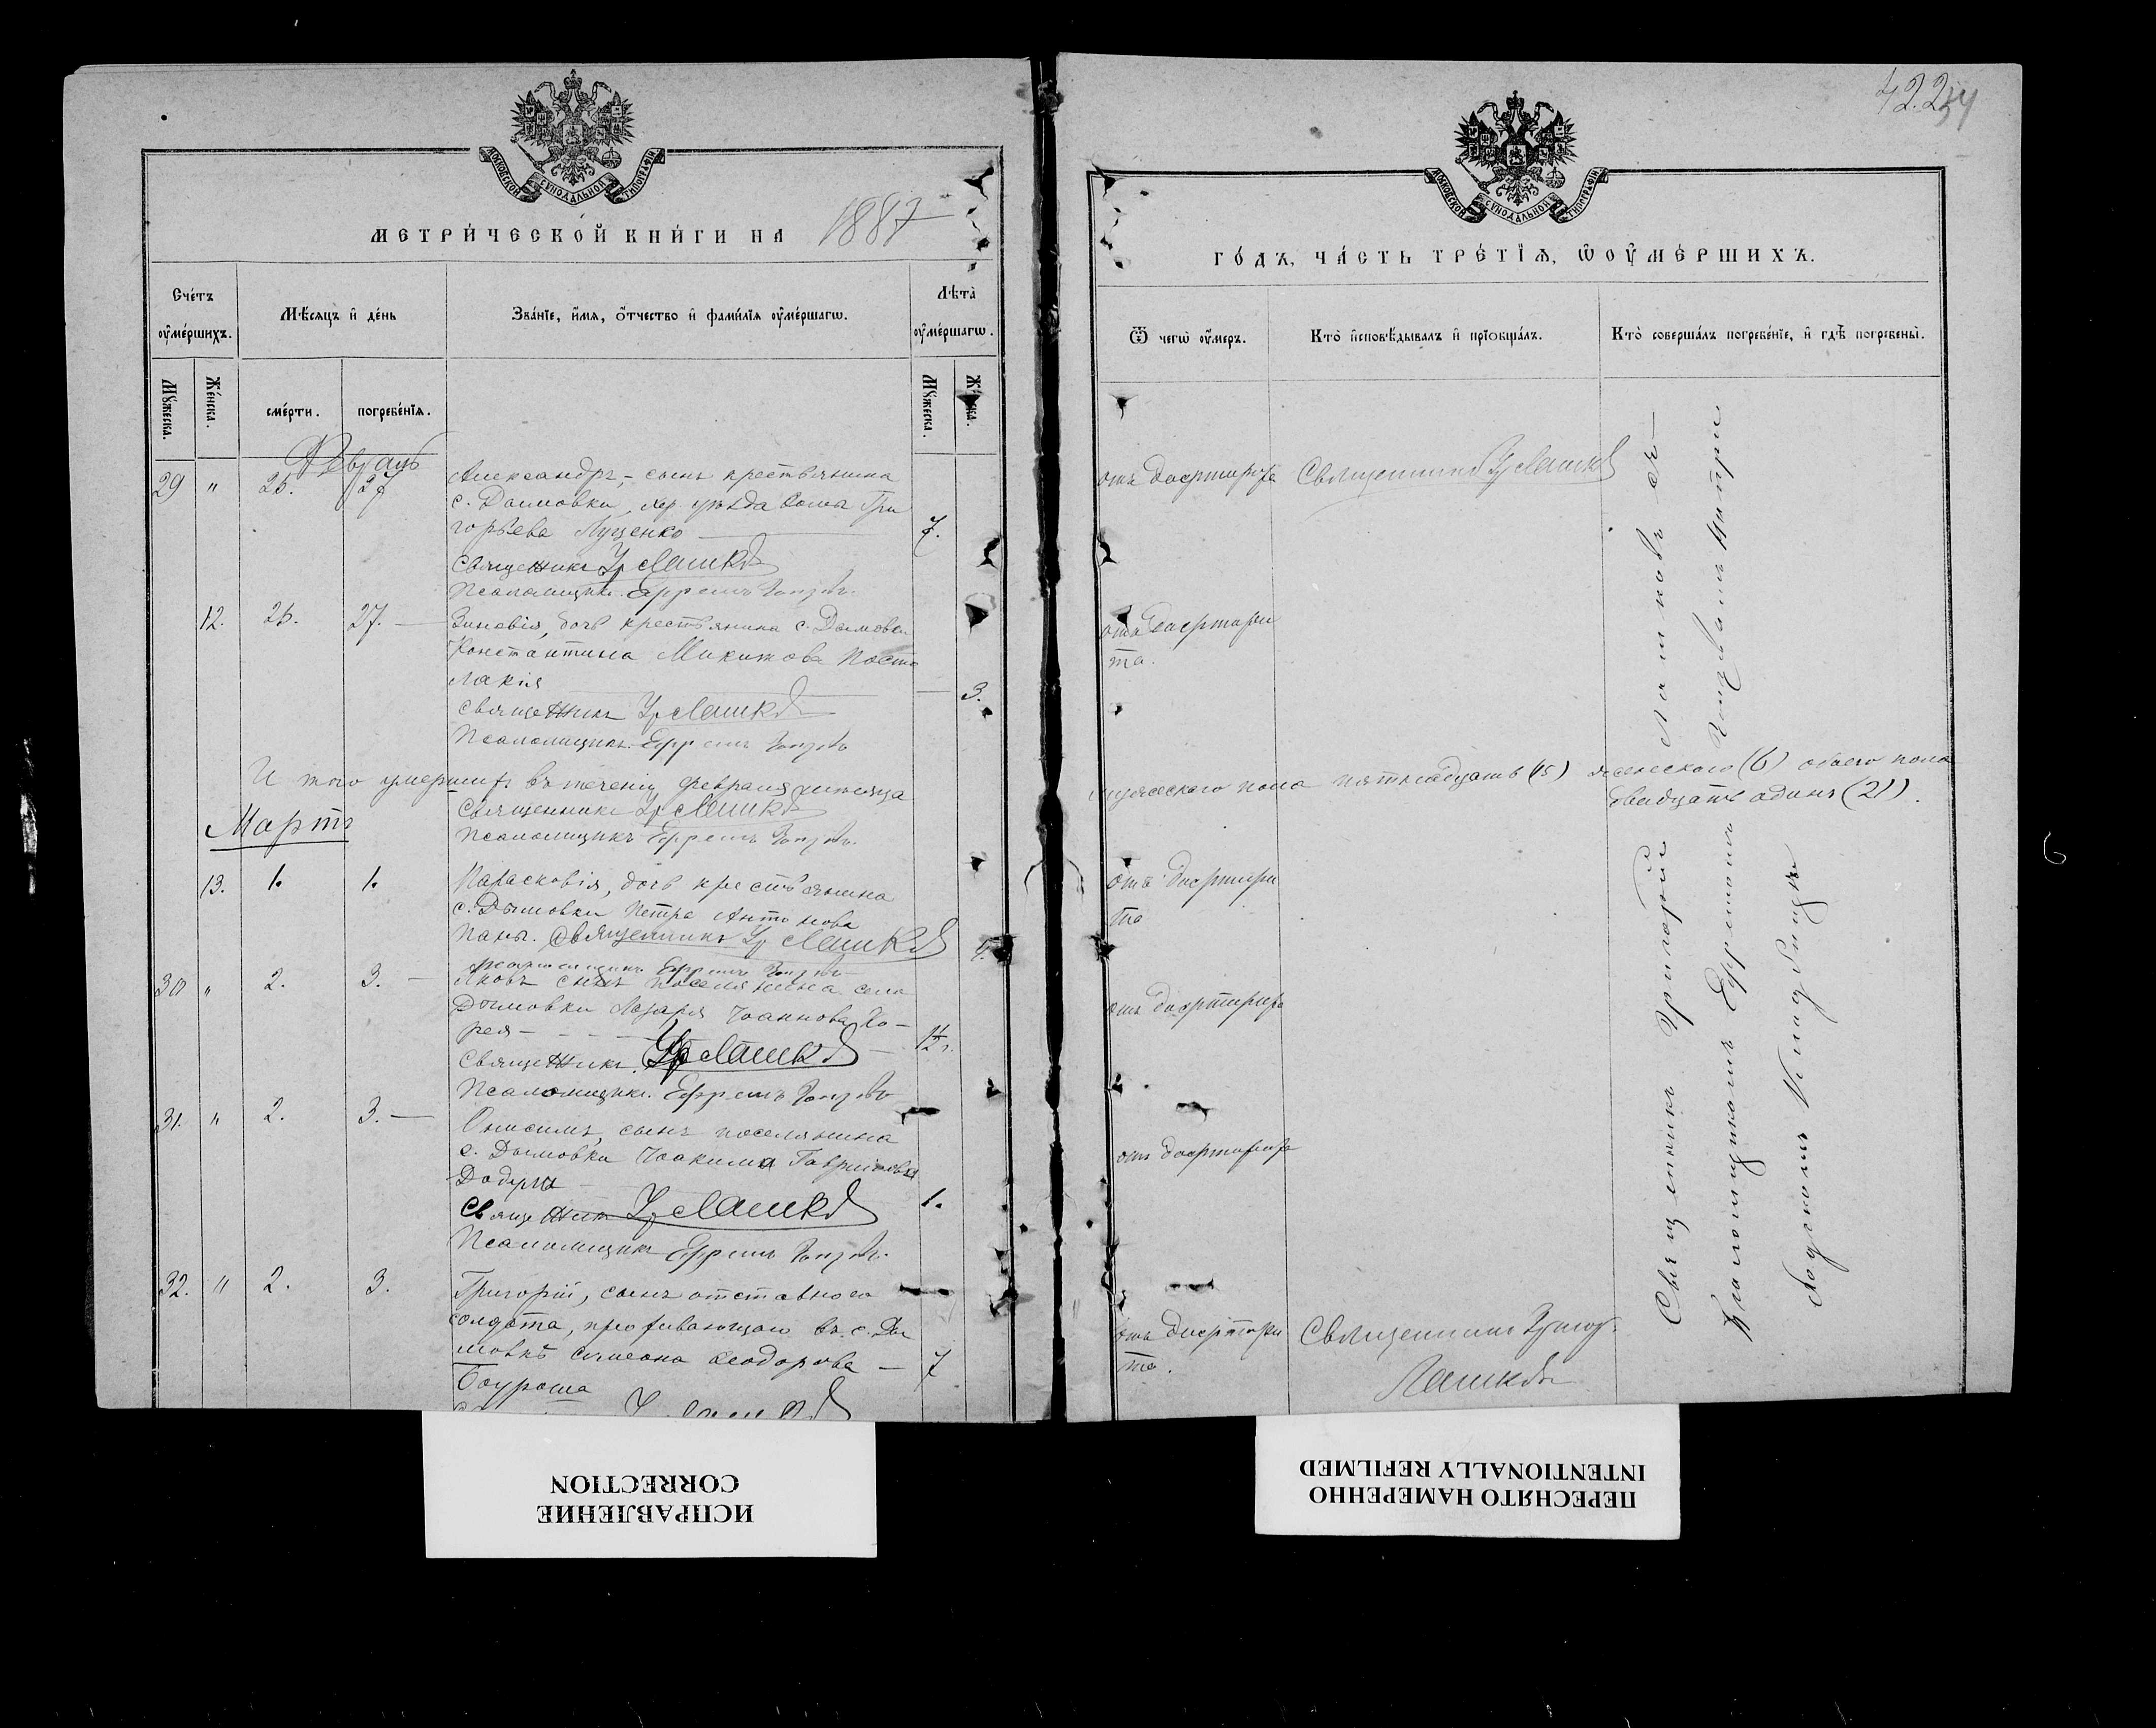 МОСКОВСКОЙ СУНОДАЛЬНОЙ ТИПОГРАФІИ
МЕТРИ́ЧЕСКОЙ КНИ́ГИ НА 1887
Сче́тъ оу҆ме́ршихъ.
Мѣ́сяцъ и҆ де́нь
Зва́нїе, и҆́мя, ѻ҆́тчество и҆ фами́лїя оу҆ме́ршагѡ.
Лѣ́та оу҆ме́ршагѡ.
Мꙋ́жеска.
Же́нска.
сме́рти.
погребе́нїѧ.
Мꙋ́жеска.
Же́нска.
Февраль
29 " 25. 27 Александръ, - сынъ крестьянина
с. Дымовки, уѣзда Гри
горьева Луценко 7.
Священникъ Гр Лашковъ
Псаломщикъ Ефремъ
12. 25. 27. — Зиновія, дочь крестьянина с. Дымовки
Константина Посто
лакія 3.
Священникъ Гр Лашковъ
Псаломщикъ Ефремъ
И того умершихъ въ теченіи февраля мѣсяца
Священникъ Гр Лашковъ
Мартъ
Псаломщикъ Ефремъ
13. 1. 1. Парасковія, дочь крестьянина
с. Дымовки Петра Антонова
Священникъ Гр Лашковъ
Псаломщикъ Ефремъ
30 " 2. 3. — Яковъ сынъ поселянина села
Дымовки Лазаря Іоаннова
Священникъ Гр Лашковъ
Псаломщикъ Ефремъ
31. " 2. 3. — Онисимъ, сынъ поселянина
с. Дымовки Іоакима Гавриилова
1.
Священникъ Гр Лашковъ
Псаломщикъ Ефремъ
32. " 2. 3. Григорій, сынъ отставного
солдата, проживающаго въ с. Ды
мовкѣ Симеона Ѳеодорова — 7
42.
234
МОСКОВСКОЙ СУНОДАЛЬНОЙ ТИПОГРАФІИ
ГО́ДЪ, ЧА́СТЬ ТРЕ́ТІѦ, Ѡ ОУ҆МЕ́РШИХЪ.
Ѿ чегѡ̀ оу҆́меръ.
Кто̀ и҆сповѣ́дывалъ и҆ прїѡбща́лъ.
Кто̀ соверша́лъ погребе́нїе, и҆ гдѣ̀ погребены̀.
отъ дифтирита Священникъ Гр Лашковъ
отъ дифтири
та.
мужескаго пола пятнадцать (15) женскаго (6) обоего пола
двадцать одинъ (21).
отъ дифтири
та
отъ дифтирита
отъ дифтирита
отъ дифтири
та.
Священникъ Григор.
Лашковъ
Священникъ Григорій Лашковъ съ
Псаломщикомъ Ефремомъ
6
ИСПРАВЛЕНИЕ
CORRECTION
ПЕРЕСНЯТО НАМЕРЕННО
INTENTIONALLY REFILMED